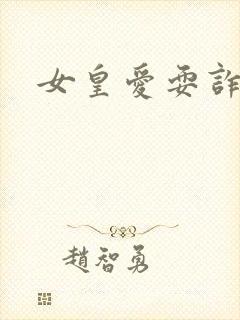 女皇愛耍詐
趙智勇